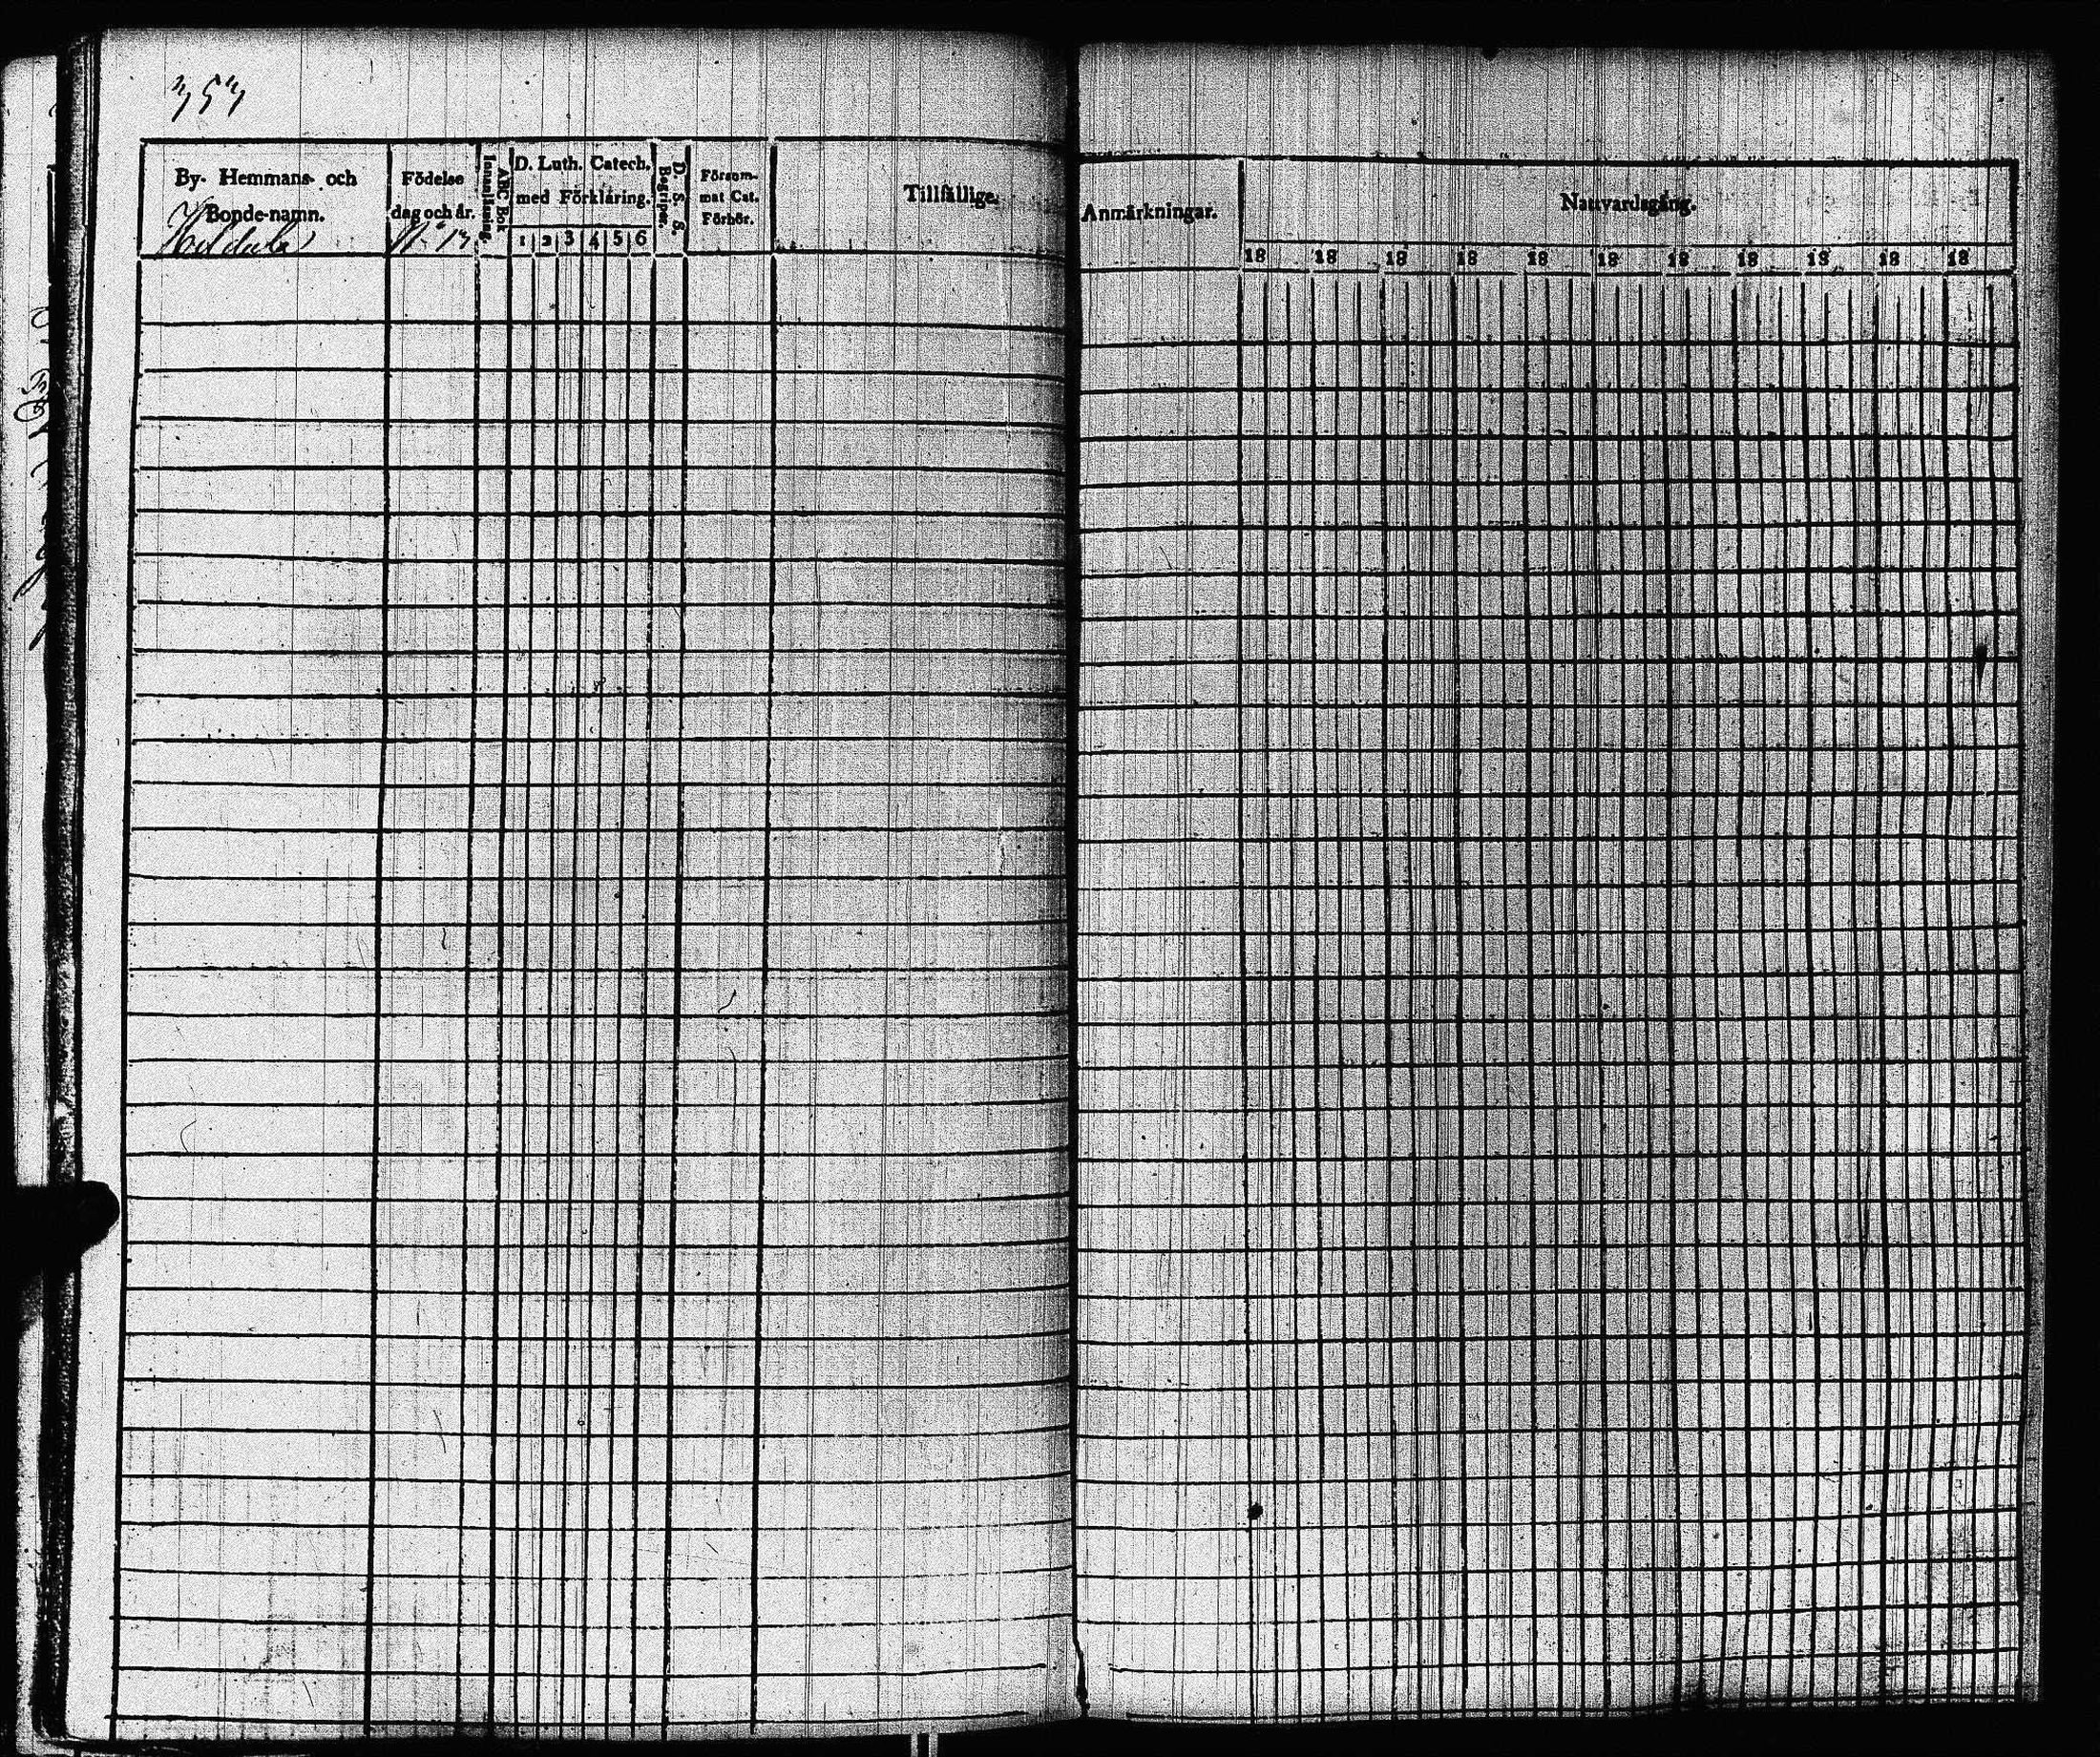 757
By- Hemmans- och
Bonde-namn.
Födelse
dag och år.
N:o 13
Innanläsning.
ABC Bok
D. Luth. Catech.
med Förklaring.
1 2 3 4 5 6
Begriper.
D. S. S.
Försom-
mat Cat.
Förhör.
Tillfällige
Anmärkningar.
Nattvardsgång.
18 18 18 18 18 18 18 18 18 18 18